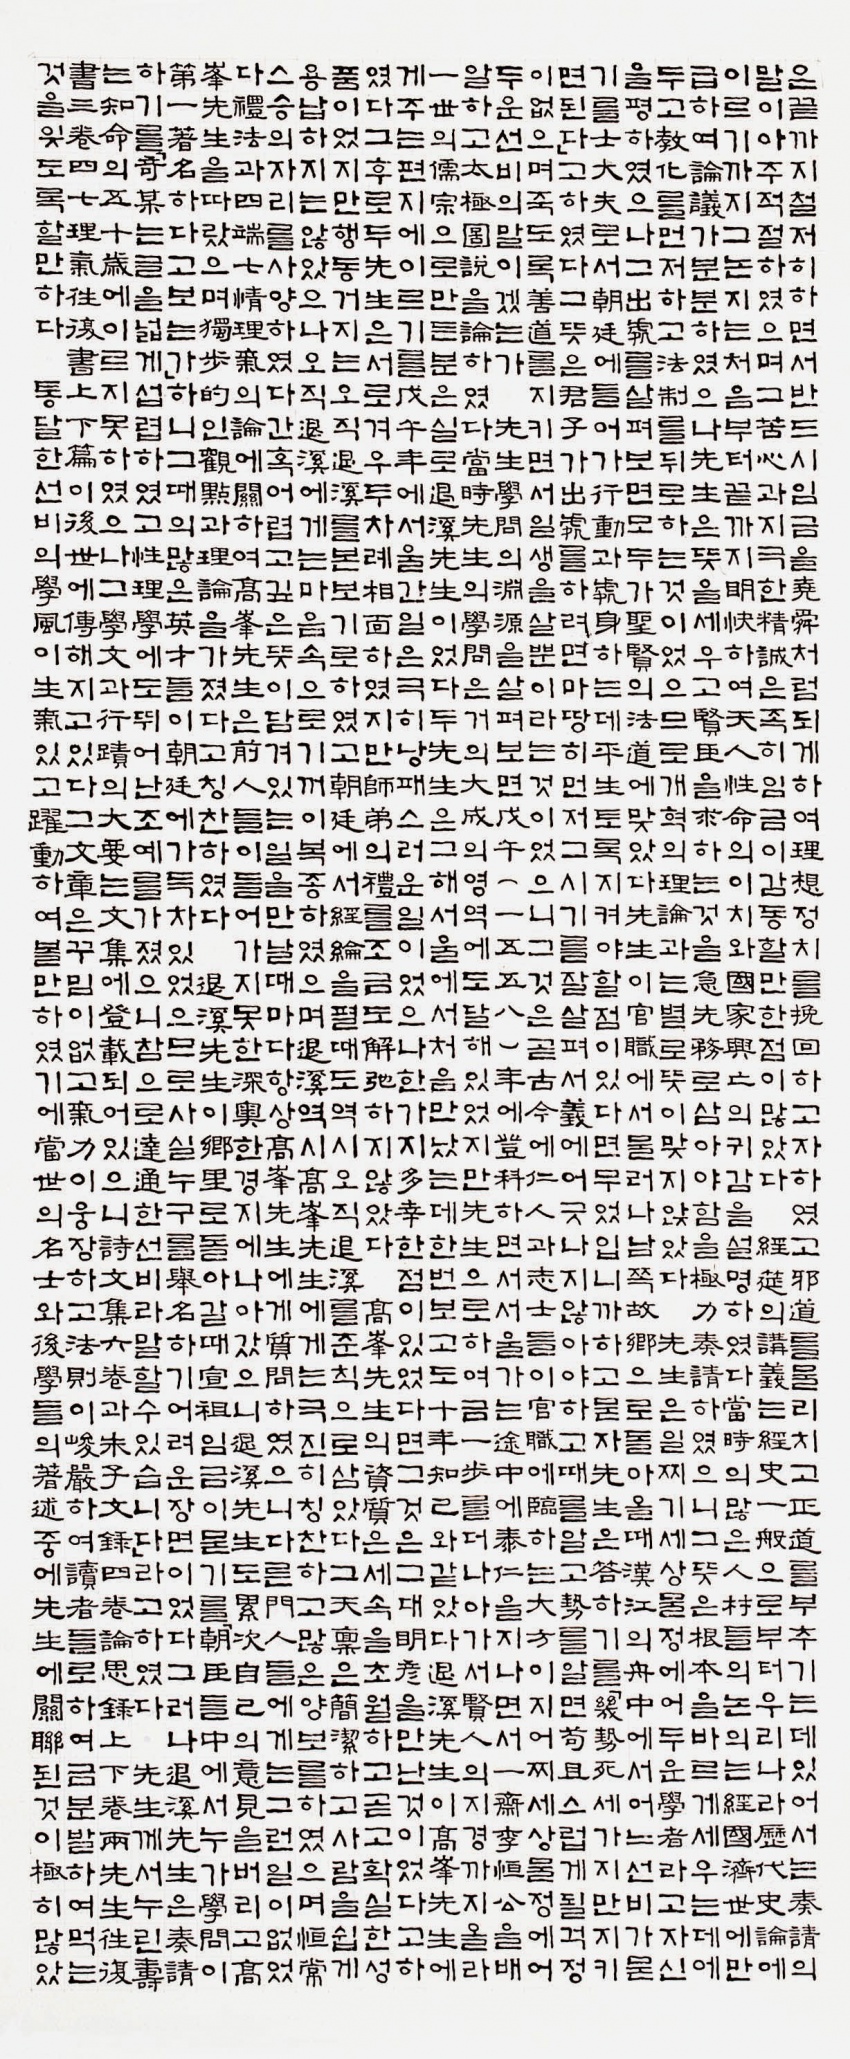 은끝까지철저히하면서반드시임금을堯舜처럼되게하여理想정치를挽回하고자하였고邪道를물리치고正道를부추기는데있어서는奏請의
말이아주적절하였으며그苦心과지극한精誠은족히임금이감동할만한점이많았다 經筵의講義는經史一般으로부터우리나라歷代史論에
이르기까지그논지는처음부터끝까지明快하여天人性命의이치와國家興亡의귀감을설명하였다當時의많은人村들의논의는經國濟世에만
급하여論議가분분하였으나先生은뜻을세우고賢臣을求하는것을急先務로삼아야함을極力奏請하였으니그뜻은根本을바르게세우는데에
두고敎化를먼저하고法制를뒤로하는것이었으므로개혁의理論과는별로뜻이맞지않았다 先生은일찌기세상물정에어두운學者라고자신
을평하였으나그出處를살펴보면모두가聖賢의法道에맞았다先生이官職에서물러나남쪽故鄕으로돌아올때漢江의舟中에서어느선비가물
기를士大夫로서朝廷에들어가行動과處身하는데平生토록지켜야할점이있다면무엇입니까하고물자先生은答하기를「幾勢死세가지만지키
면된다고하였다그뜻은君子가出處를하려면마땅히먼저그시기를잘살펴서義에어긋나지않아야하고때를알고勢를알면苟且스럽게될걱정
이없으며족도록善道를지키면서일생을살뿐이라는것이었으니그것은골古今에仁人과志士들이官職에臨하는大方이지어찌세상물정에어
두운선비의말이겠는가 先生學問의淵源을살펴보면戊午(一五五八)年에登科하면서서울가는途中에泰仁을지나면서一齋李恒公을배
알하고太極圖說을論하였다當時先生의學問은거의大成의영역에도달해있었지만先生으로하여금一步를더나아가서賢人의지경까지올라
一世의儒宗으로만든분은실로退溪先生이었다두先生은그해서울에서처음만났는데한번보고도十年知己와같았다退溪先生이高峯先生에
게주는편지에이르기를戊午年에서울간일은극히낭패스러운일이었으나한가지多幸한점이있었다면그것은그대明彥을만난것이었다고하
였다그후로두先生은서로겨우두차례相面하였지만師弟의禮를조금도解弛하지않았다 高峯先生의資質은세속을초월하고곧고확실한성
품이었지만행동거지는오직退溪를본보기로하였고朝廷에서經綸을펼때도역시오직退溪를준칙으로삼았다그天稟은簡潔하고사람을쉽게
용납하지는않았으나오직退溪에게는마음속으로기꺼이복종하였으며退溪역시高峯先生에게는극진히칭찬하고많은양보를하였으며恒常
스승의자리를사양하였다간혹어렵고깊은뜻이담겨있는일을만날때마다항상高峯先生에게質問하였으니다른門人들에게는그런일이없었
다禮法과四端七情理氣의論에關하여高峯先生은前人들이들어가지못한深奧한경지에나아갔으니退溪先生도累次自己의意見을버리고高
峯先生을따랐으며獨步的인觀點과理論을가졌다고칭찬하였다 退溪先生이鄕里로돌아갈때宣祖임금이물기를「朝臣들中에서누가學問이
第一著名하다고보는가」하니그때의많은英才들이朝廷에가득차있었으므로사실누구를擧名하기어려운장면이었다그러나退溪先生은奏請
하기를「奇某는글을넓게섭렵하였고性理學에도뛰어난조예를가졌으니참으로達通한선비라말할수있습니다」라고하였다 先生께서누린壽
는知命의五十歲에이르지못하였으나그學文과行蹟의大要는文集에登載되어있으니詩文集六卷과朱子文錄四卷論思錄上下卷兩先生往復
書三卷四七理氣往復書上下篇이後世에傳해지고있다그文章은꾸밈이없고氣力이웅장하고法則이峻嚴하여讀者들로하여금분발하여먹는
것을잊도록할만하다 통달한선비의學風이生氣있고躍動하여볼만하였기에當世의名士와後學들의著述중에先生에關聯된것이極히많았